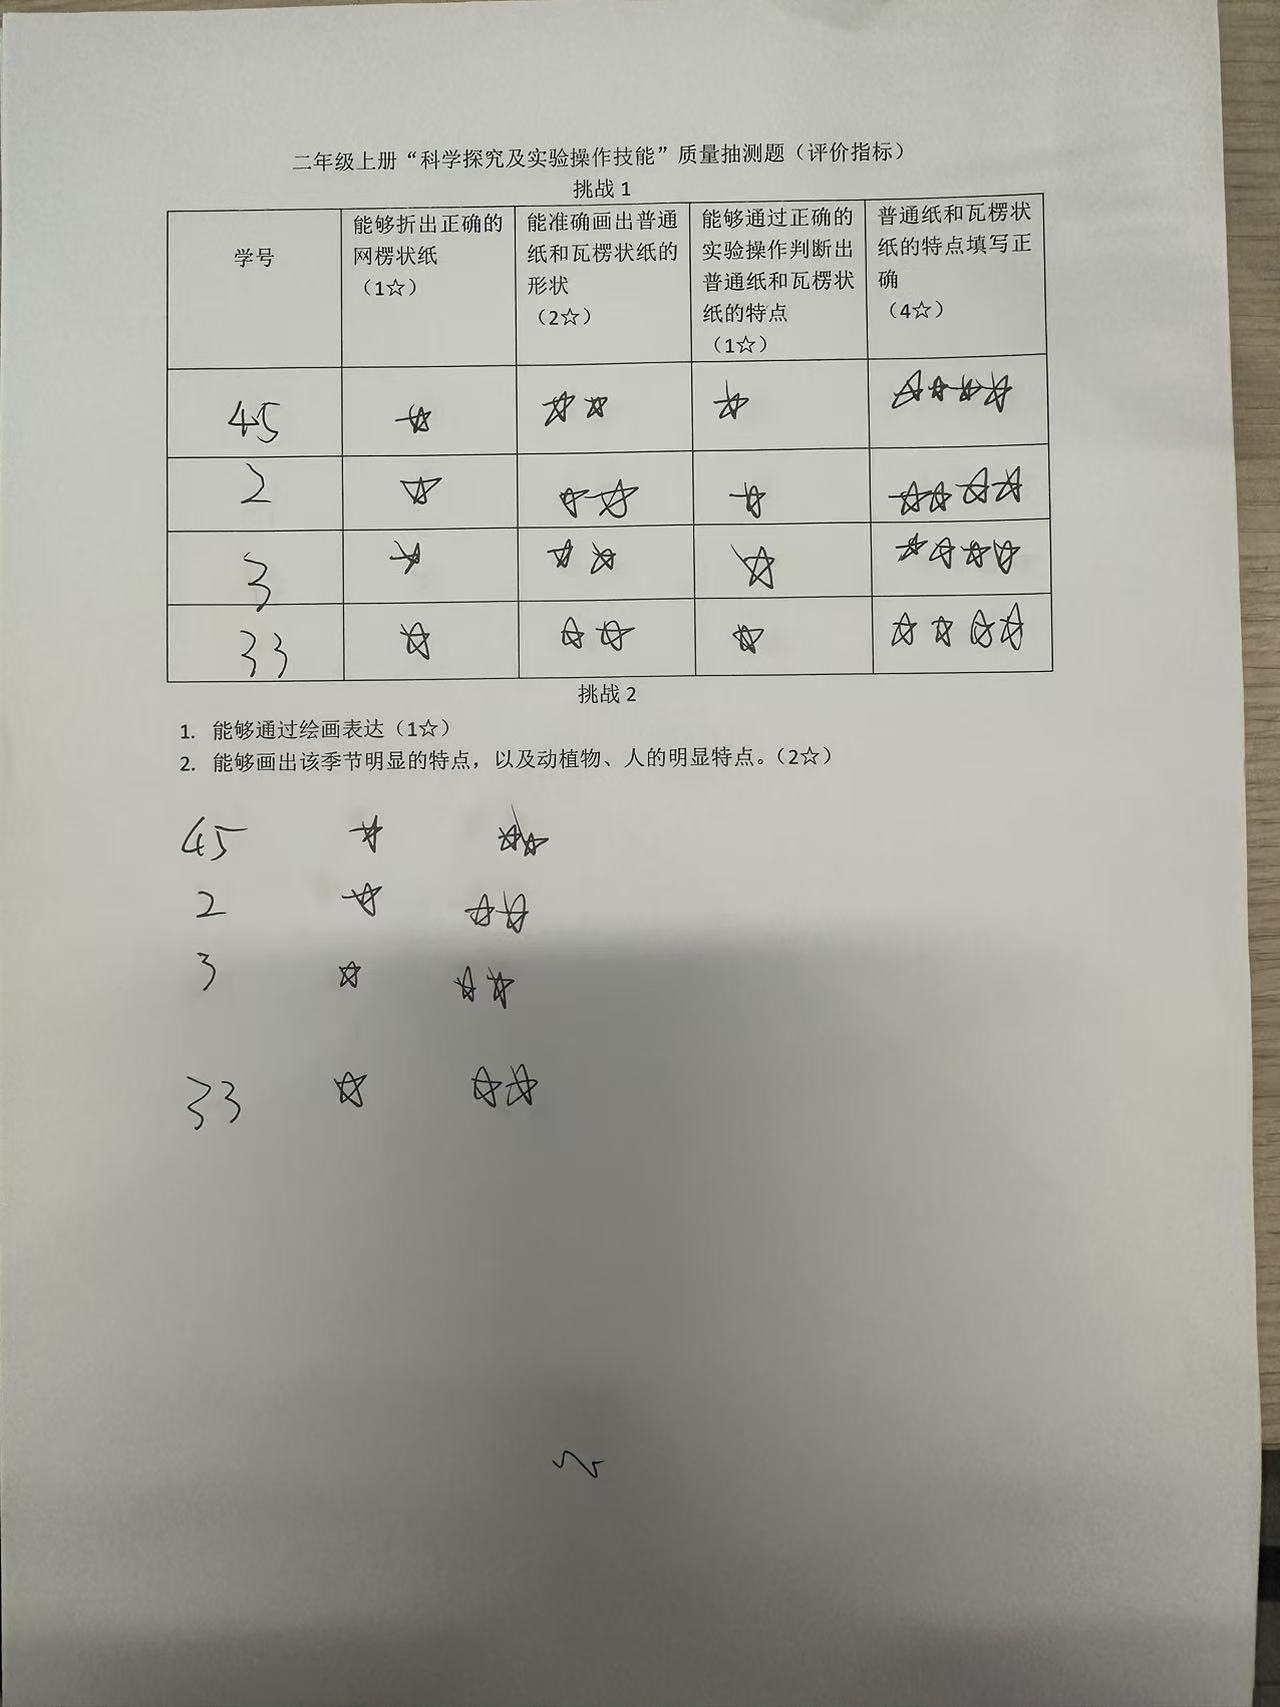 二年级上册“科学探究及实验操作技能”质量抽测题（评价指标）
挑战1
学号
能够折出正确的
网楞状纸
（1☆）
能准确画出普通
纸和瓦楞状纸的
形状
（2☆）
能够通过正确的
实验操作判断出
普通纸和瓦楞状
纸的特点
（1☆）
普通纸和瓦楞状
纸的特点填写正
确
（4☆）
45 ☆ ☆☆ ☆ ☆☆☆☆
2 ☆ ☆☆ ☆ ☆☆☆☆
3 ☆ ☆☆ ☆ ☆☆☆☆
33 ☆ ☆☆ ☆ ☆☆☆☆
挑战2
1. 能够通过绘画表达（1☆）
2. 能够画出该季节明显的特点，以及动植物、人的明显特点。（2☆）
45 ☆ ☆☆
2 ☆ ☆☆
3 ☆ ☆☆
33 ☆ ☆☆